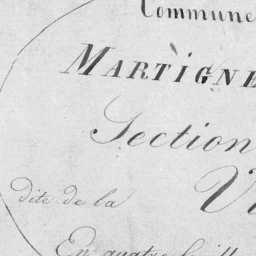 Commune
MARTIGNE
Section
dite de la
En quatre